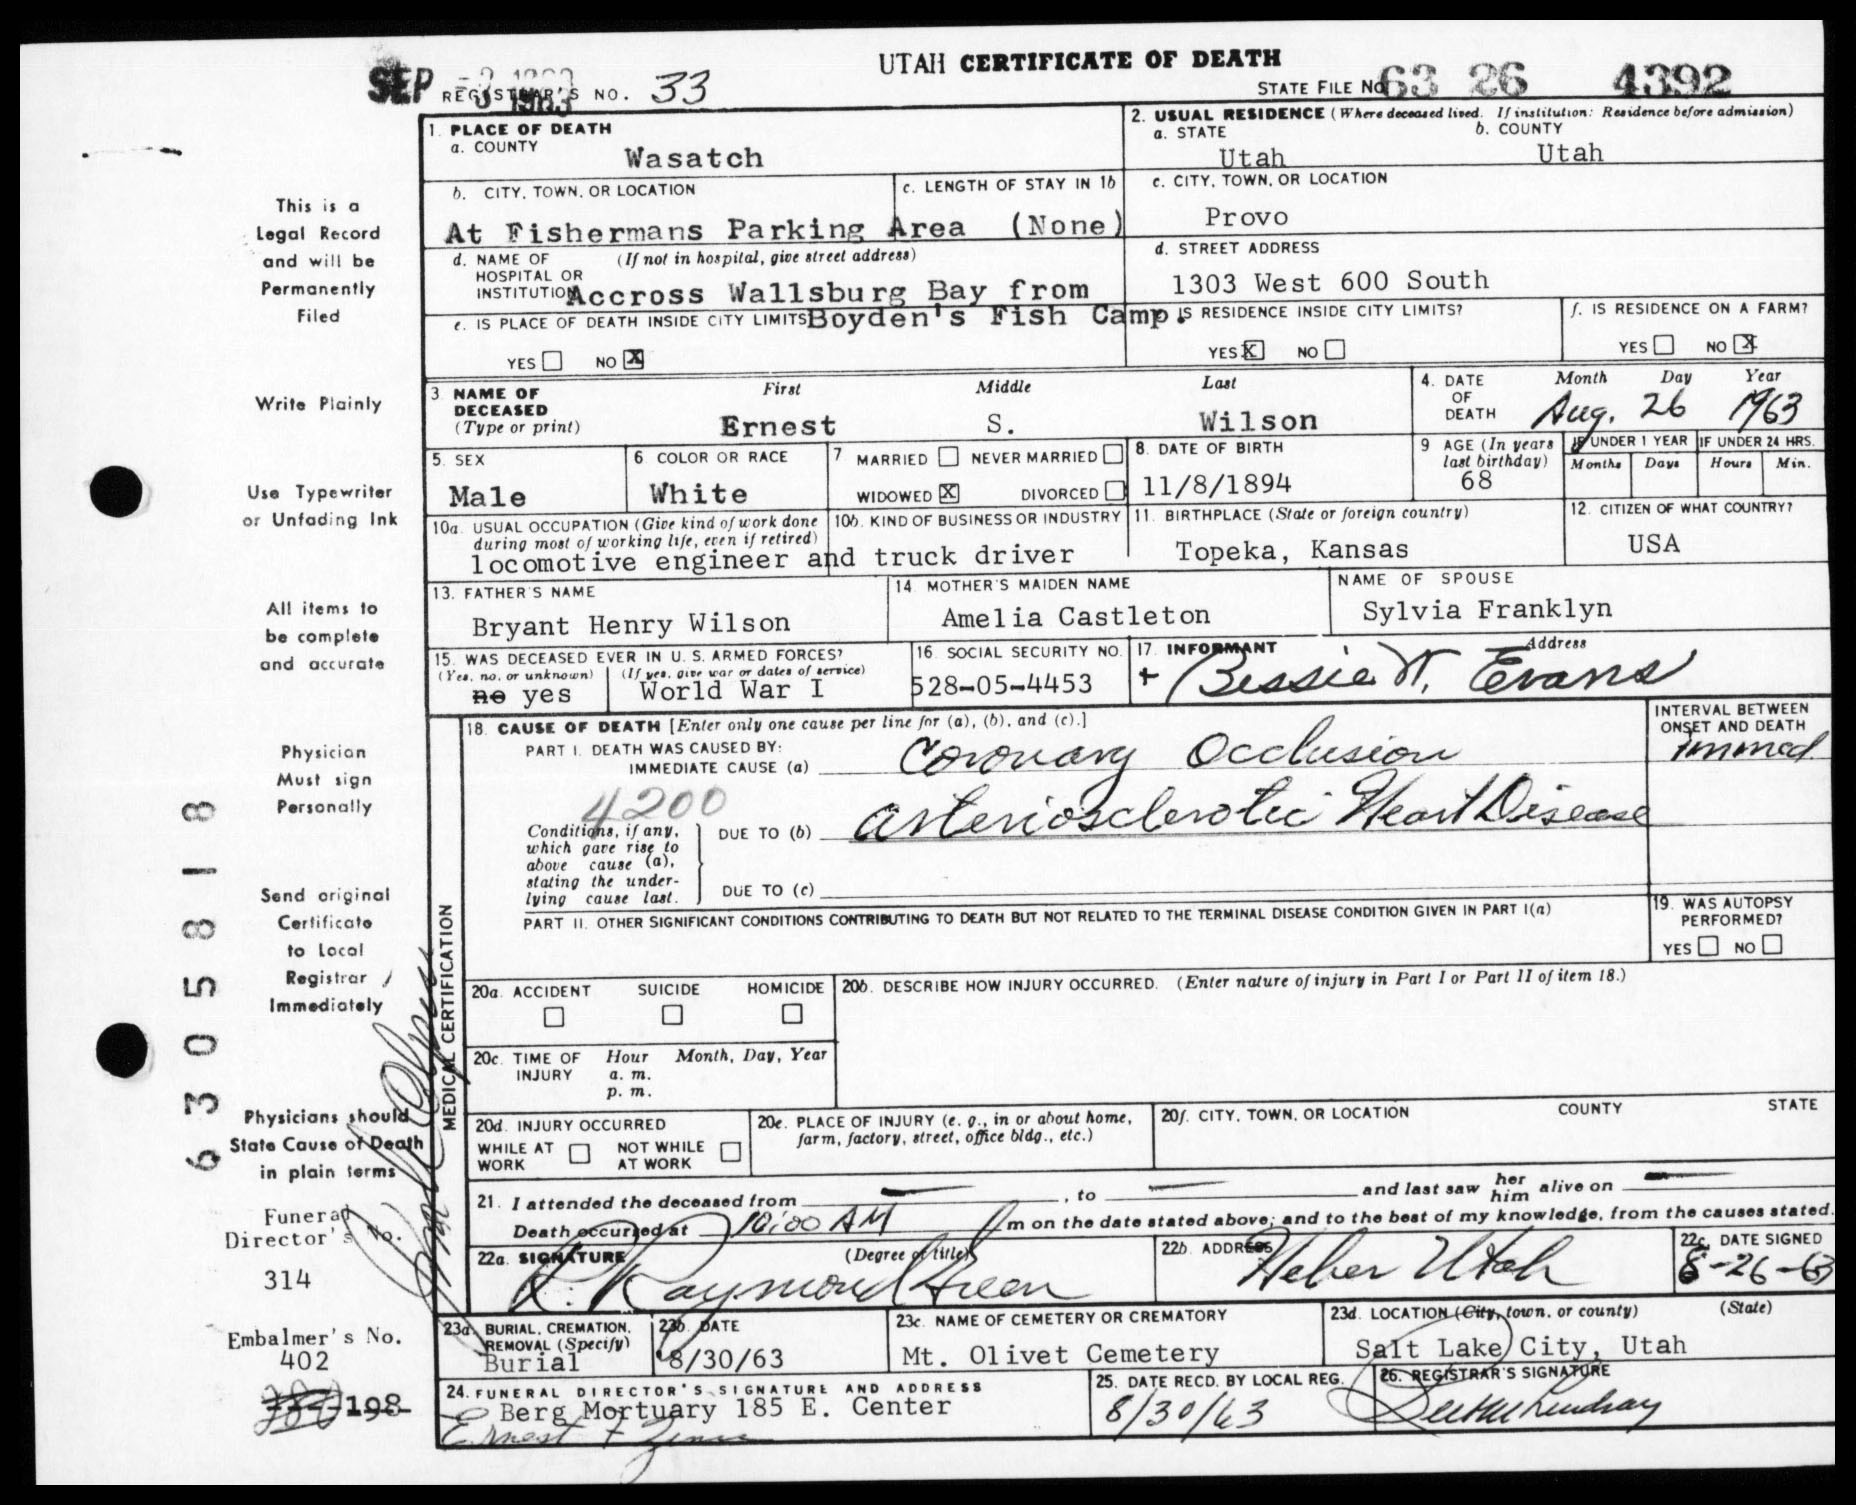 UTAH CERTIFICATE OF DEATH
SEP -3 1963
REGISTRAR'S NO. 33
STATE FILE NO. 63 26 4392
1. PLACE OF DEATH
a. COUNTY
Wasatch
2. USUAL RESIDENCE (Where deceased lived. If institution: Residence before admission)
a. STATE b. COUNTY
Utah Utah
b. CITY, TOWN, OR LOCATION c. LENGTH OF STAY IN 1b
At Fishermans Parking Area (None)
c. CITY, TOWN, OR LOCATION
Provo
d. NAME OF HOSPITAL OR INSTITUTION (If not in hospital, give street address)
Accross Wallsburg Bay from
Boyden's Fish Camp.
d. STREET ADDRESS
1303 West 600 South
e. IS PLACE OF DEATH INSIDE CITY LIMITS
YES NO X
IS RESIDENCE INSIDE CITY LIMITS?
YES X NO
f. IS RESIDENCE ON A FARM?
YES NO X
3 NAME OF DECEASED (Type or print) First Middle Last
Ernest S. Wilson
4. DATE OF DEATH Month Day Year
Aug. 26 1963
5. SEX
Male
6. COLOR OR RACE
White
7 MARRIED NEVER MARRIED
WIDOWED X DIVORCED
8. DATE OF BIRTH
11/8/1894
9 AGE (In years last birthday)
68
IF UNDER 1 YEAR IF UNDER 24 HRS.
Months Days Hours Min.
10a. USUAL OCCUPATION (Give kind of work done during most of working life, even if retired)
10b. KIND OF BUSINESS OR INDUSTRY
locomotive engineer and truck driver
11. BIRTHPLACE (State or foreign country)
Topeka, Kansas
12. CITIZEN OF WHAT COUNTRY?
USA
13. FATHER'S NAME
Bryant Henry Wilson
14 MOTHER'S MAIDEN NAME
Amelia Castleton
NAME OF SPOUSE
Sylvia Franklyn
15. WAS DECEASED EVER IN U. S. ARMED FORCES?
(Yes, no, or unknown) (If yes, give war or dates of service)
no yes World War I
16. SOCIAL SECURITY NO.
528-05-4453
17. INFORMANT Address
+ Bessie W. Evans
18. CAUSE OF DEATH [Enter only one cause per line for (a), (b), and (c).]
INTERVAL BETWEEN ONSET AND DEATH
PART I. DEATH WAS CAUSED BY:
IMMEDIATE CAUSE (a) Coronary Occlusion immed.
4200
Conditions, if any, which gave rise to above cause (a), stating the underlying cause last.
DUE TO (b) arteriosclerotic Heart Disease
DUE TO (c)
PART II. OTHER SIGNIFICANT CONDITIONS CONTRIBUTING TO DEATH BUT NOT RELATED TO THE TERMINAL DISEASE CONDITION GIVEN IN PART I(a)
19. WAS AUTOPSY PERFORMED?
YES NO
MEDICAL CERTIFICATION
20a. ACCIDENT SUICIDE HOMICIDE
20b. DESCRIBE HOW INJURY OCCURRED. (Enter nature of injury in Part I or Part II of item 18.)
20c. TIME OF INJURY Hour Month, Day, Year
a. m.
p. m.
20d. INJURY OCCURRED
WHILE AT WORK NOT WHILE AT WORK
20e. PLACE OF INJURY (e. g., in or about home, farm, factory, street, office bldg., etc.)
20f. CITY, TOWN, OR LOCATION COUNTY STATE
21. I attended the deceased from , to and last saw her him alive on
Death occurred at 10:00 AM m on the date stated above; and to the best of my knowledge, from the causes stated.
22a. SIGNATURE (Degree or title)
R. Raymond Green
22b. ADDRESS
Heber Utah
22c. DATE SIGNED
8-26-63
23a. BURIAL, CREMATION, REMOVAL (Specify)
Burial
23b. DATE
8/30/63
23c. NAME OF CEMETERY OR CREMATORY
Mt. Olivet Cemetery
23d. LOCATION (City, town, or county) (State)
Salt Lake City, Utah
24. FUNERAL DIRECTOR'S SIGNATURE AND ADDRESS
Berg Mortuary 185 E. Center
Ernest F
25. DATE RECD. BY LOCAL REG.
8/30/63
26. REGISTRAR'S SIGNATURE
Lindsay
This is a
Legal Record
and will be
Permanently
Filed
Write Plainly
Use Typewriter
or Unfading Ink
All items to
be complete
and accurate
Physician
Must sign
Personally
Send original
Certificate
to Local
Registrar
Immediately
Physicians should
State Cause of Death
in plain terms
Funeral
Director's No.
314
Embalmer's No.
402
198
6305818